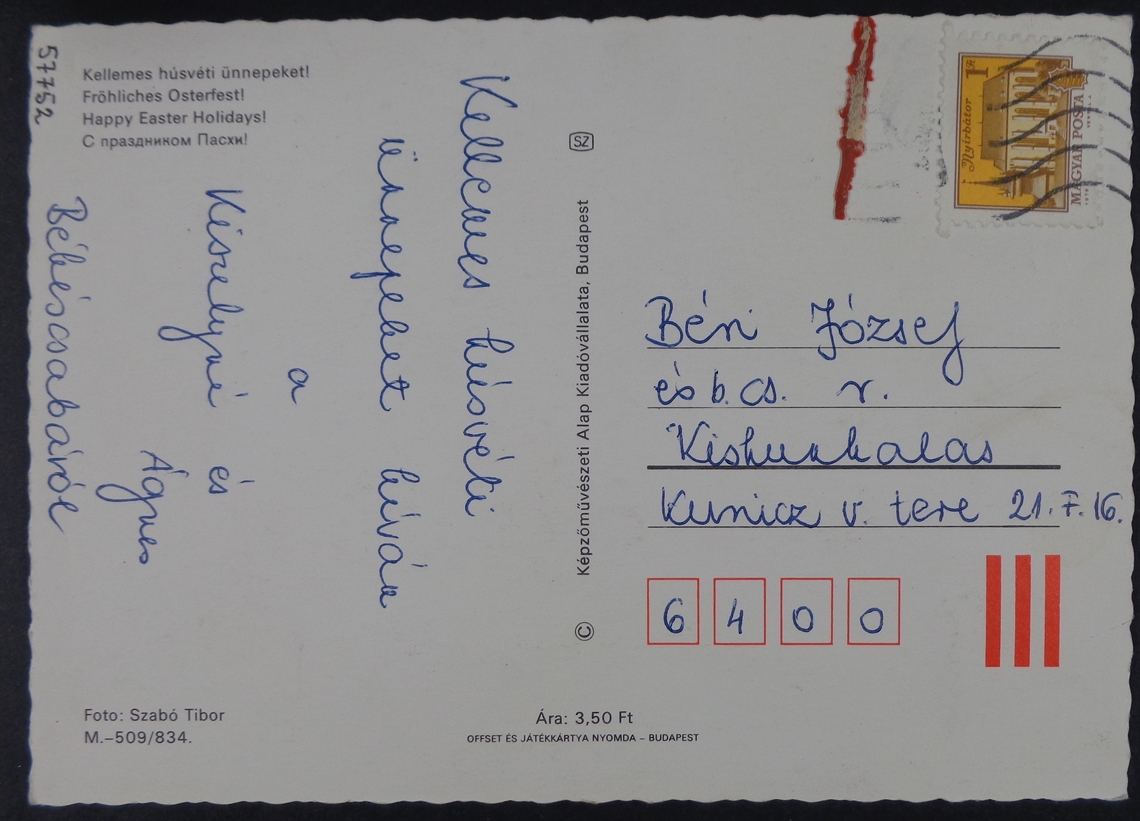 57752
Kellemes húsvéti ünnepeket!
Fröhliches Osterfest!
Happy Easter Holidays!
С праздником Пасхи!
Kellemes húsvéti
ünnepeket kíván
a
Készelyné és
Ágnes
Békéscsabáról
Foto: Szabó Tibor
M.–509/834.
SZ
Képzőművészeti Alap Kiadóvállalata, Budapest
©
Ára: 3,50 Ft
OFFSET ÉS JÁTÉKKÁRTYA NYOMDA – BUDAPEST
1 Ft
Nyírbátor
MAGYAR POSTA
Béni József
és b. cs. r.
Kiskunhalas
Kunicz v. tere 21. F. 16.
6400